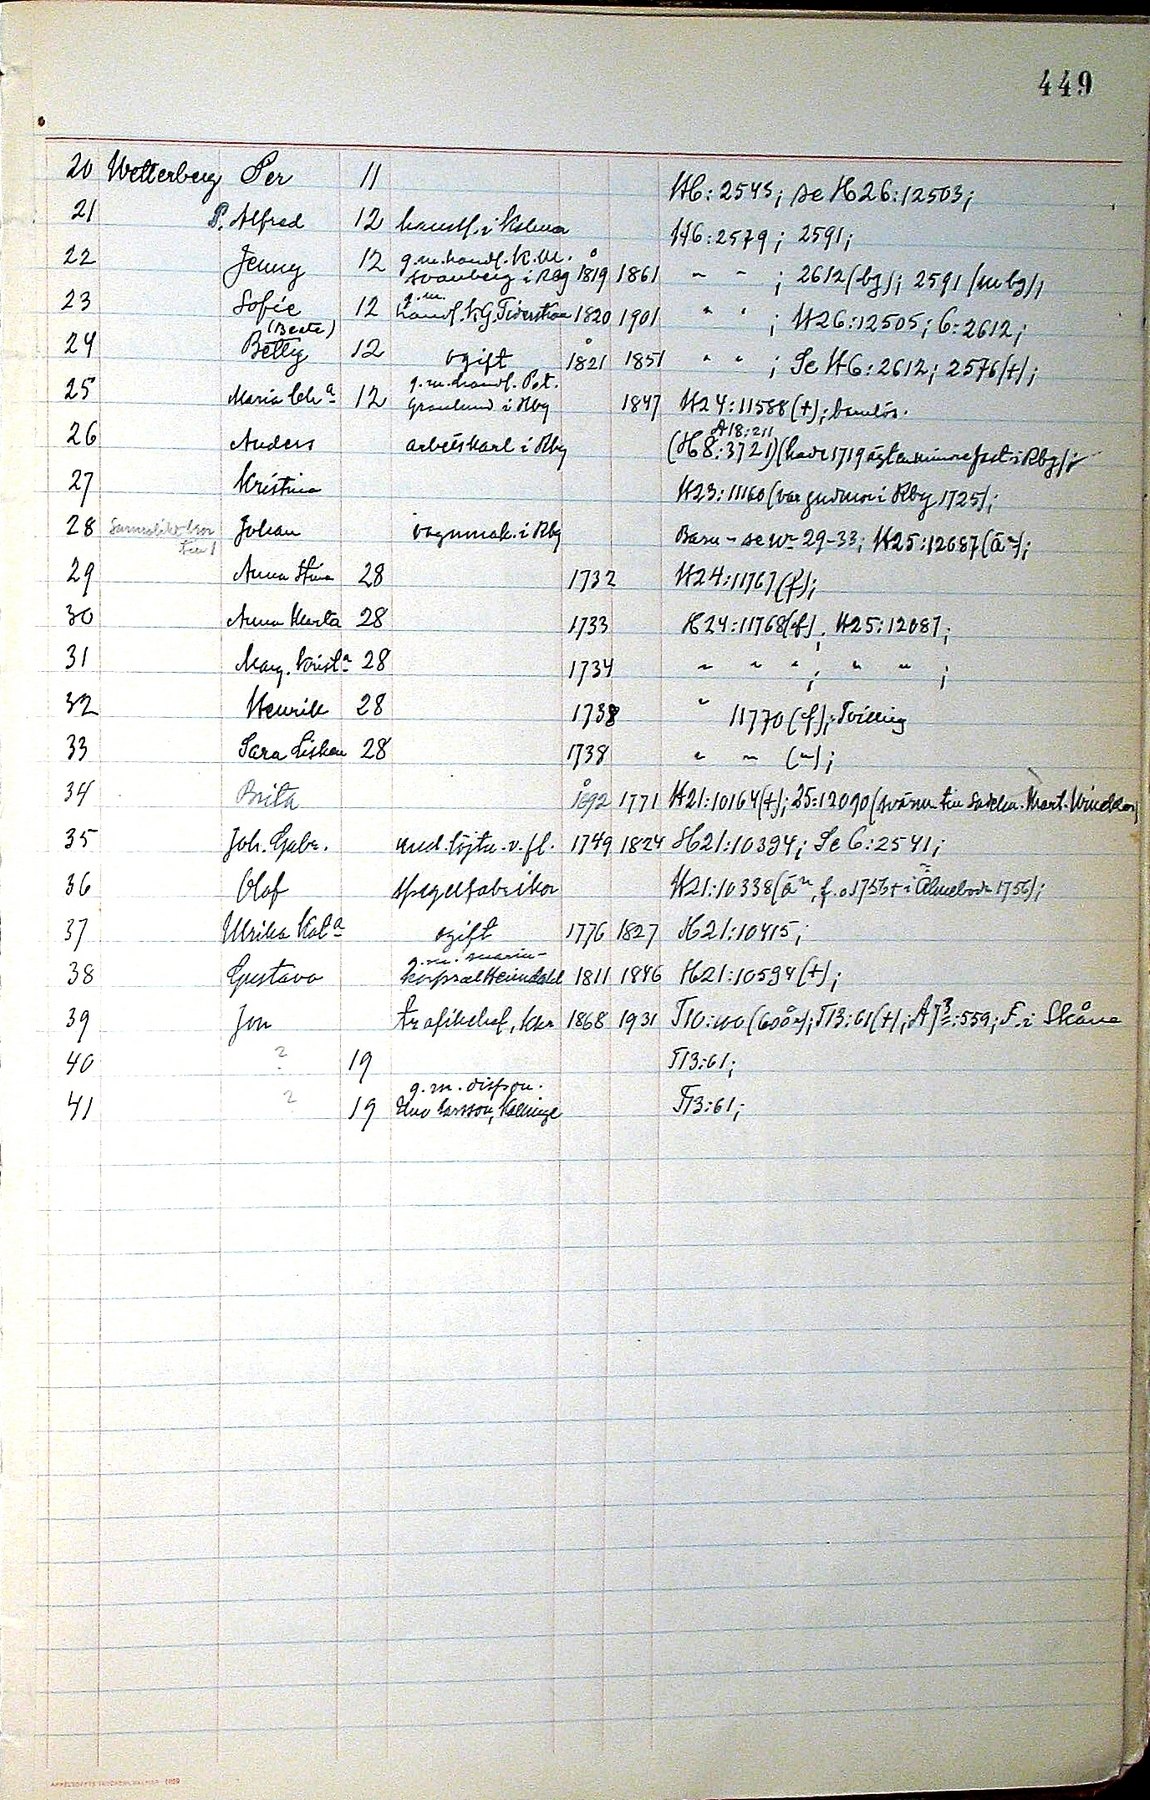 449
20 Wetterberg Per 11 H6:2545; se H26:12503;
21 P. Alfred 12 handl. i Kalmar H6:2579; 2591;
22 Jenny 12 g.m. handl. K.M. Svanberg i Rbg 1819 1861 " " ; 2612 (bg); 2591 (m bg);
23 Sofie 12 g.m. handl. K.G. Tiderström 1820 1901 " " ; H26:12505; 6:2612;
24 (Beate) Betty 12 ogift 1821 1851 " " ; Se H6:2612; 2576 (+);
25 Maria Chra 12 g.m. handl. Pet. Grönlund i Rbg 1847 H24:11588 (+); barnlös.
26 Anders arbetskarl i Rbg A18:211 (H8:3721) (hade 1719 ägt en mindre fast. i Rbg);
27 Kristina H23:11160 (var gudmor i Rbg 1725);
28 Sannolikt bror till 1 Johan vagnmak. i Rbg Barn - se Nr 29-33; H25:12087 (år);
29 Anna Stina 28 1732 H24:11767 (f);
30 Anna Marta 28 1733 H24:11768 (f); H25:12087;
31 Marg. Krista 28 1734 " " " ; " " ;
32 Henrik 28 1738 " 11770 (f); Tvilling
33 Sara Lisken 28 1738 " " (");
34 Brita 1692 1771 H21:10164 (+); 25:12090 (svärm. till Mart. Winckler)
35 Joh. Gabr. und. löjtn. v. fl. 1749 1824 H21:10394; Se 6:2541;
36 Olof Spegelfabrikör H21:10338 (år, f. o 1756 + i Älmeboda 1756);
37 Ulrika Kata ogift 1776 1827 H21:10415;
38 Gustava g.m. marin- korpral Heimdahl 1811 1846 H21:10594 (+);
39 Jon trafikchef, Kkr 1868 1931 T10:100 (60 år); T13:61 (+); A13:559; F. i Skåne
40 ? 19 T13:61;
41 ? 19 g.m. dispon. Uno Larsson, Kallinge T13:61;